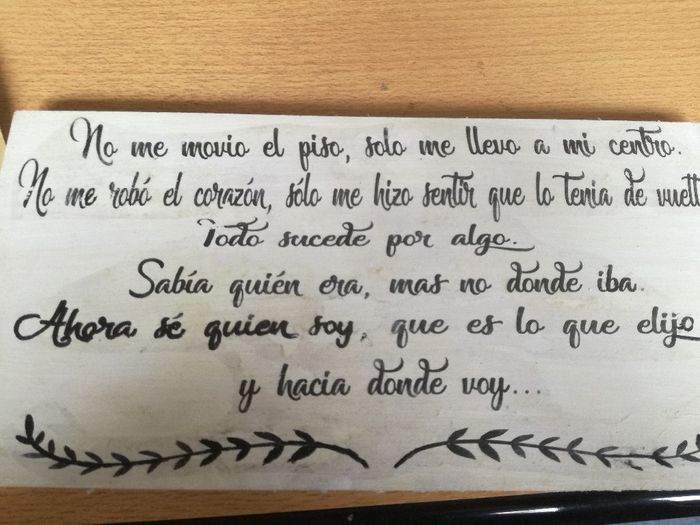 No me movio el piso, solo me llevo a mi centro.
No me robó el corazón, sólo me hizo sentir que lo tenia de vuelt
Todo sucede por algo.
Sabía quién era, mas no donde iba.
Ahora sé quien soy, que es lo que elijo
y hacia donde voy...